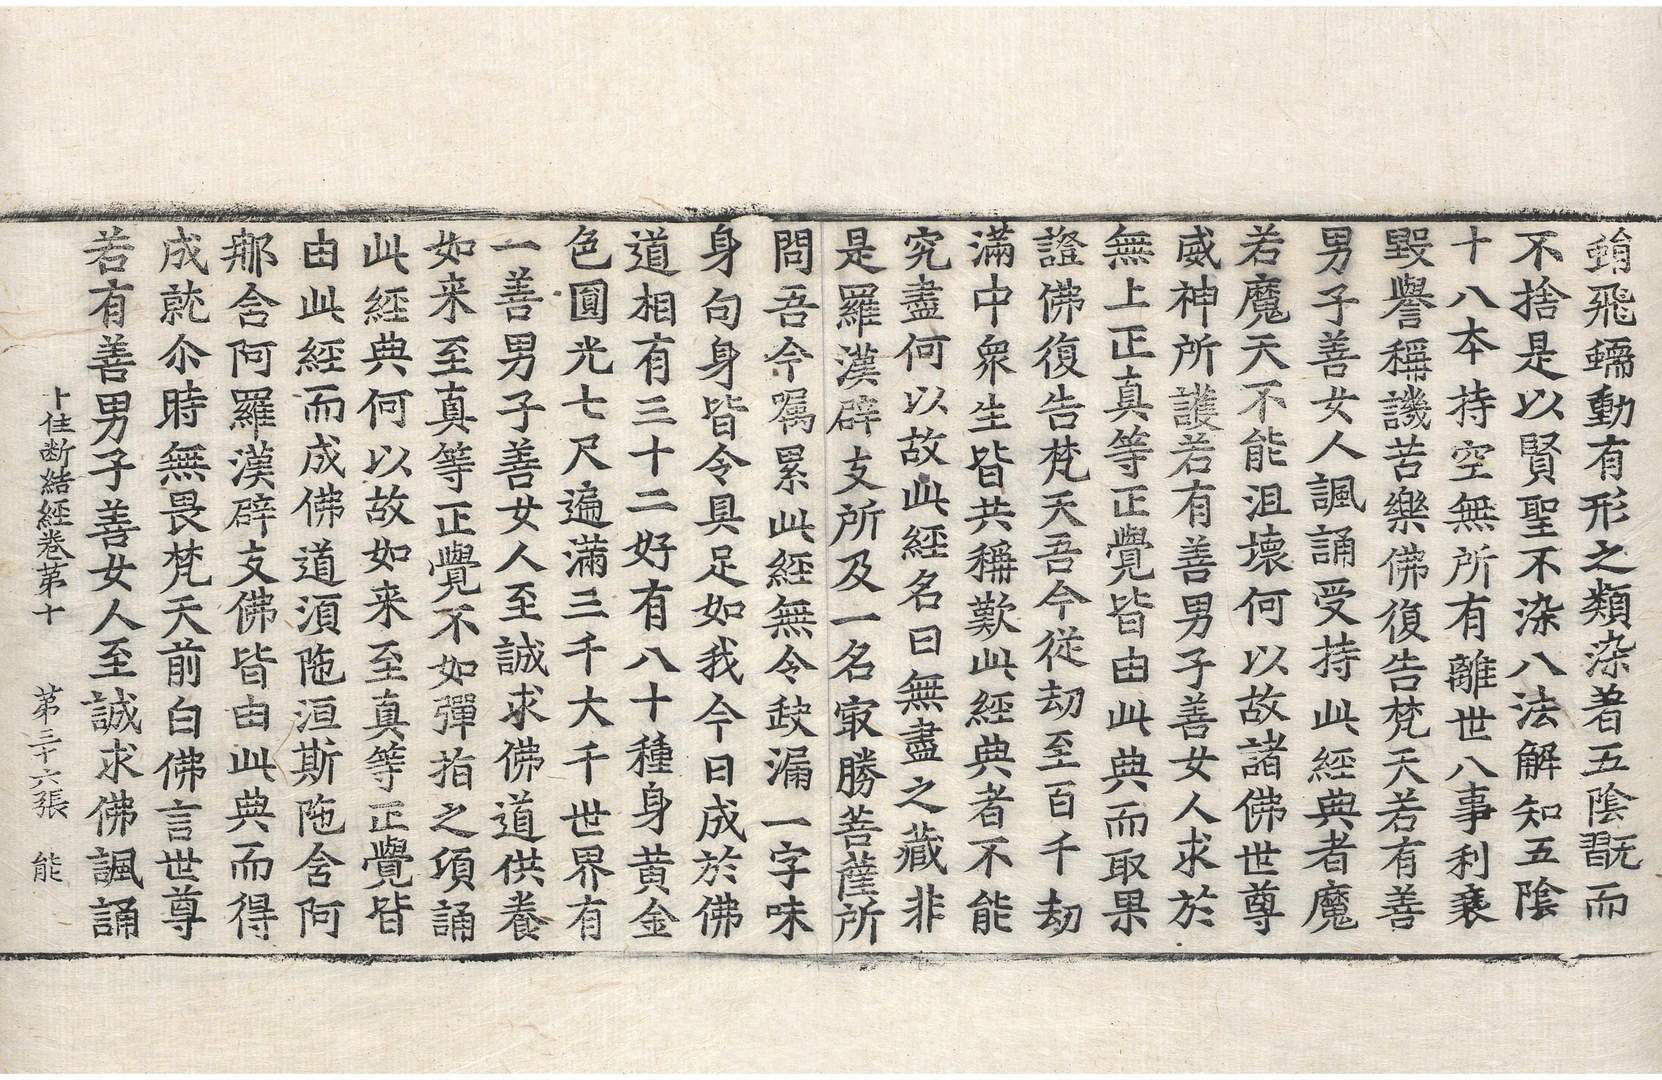 蜎飛蠕動有形之類染著五陰翫而
不捨是以賢聖不染八法解知五陰
十八本持空無所有離世八事利衰
毀譽稱譏苦樂佛復告梵天若有善
男子善女人諷誦受持此經典者魔
若魔天不能沮壞何以故諸佛世尊
威神所護若有善男子善女人求於
無上正真等正覺皆由此典而取果
證佛復告梵天吾今從劫至百千劫
滿中衆生皆共稱歎此經典者不能
究盡何以故此經名曰無盡之藏非
是羅漢辟支所及一名㝡勝菩薩所
問吾今囑累此經無令缺漏一字味
身句身皆令具足如我今日成於佛
道相有三十二好有八十種身黃金
色圓光七尺遍滿三千大千世界有
一善男子善女人至誠求佛道供養
如来至真等正覺不如彈指之頃誦
此經典何以故如来至真等正覺皆
由此經而成佛道須陁洹斯陁含阿
那含阿羅漢辟支佛皆由此典而得
成就尒時無畏梵天前白佛言世尊
若有善男子善女人至誠求佛諷誦
十住断結經卷第十　第三十六張　能